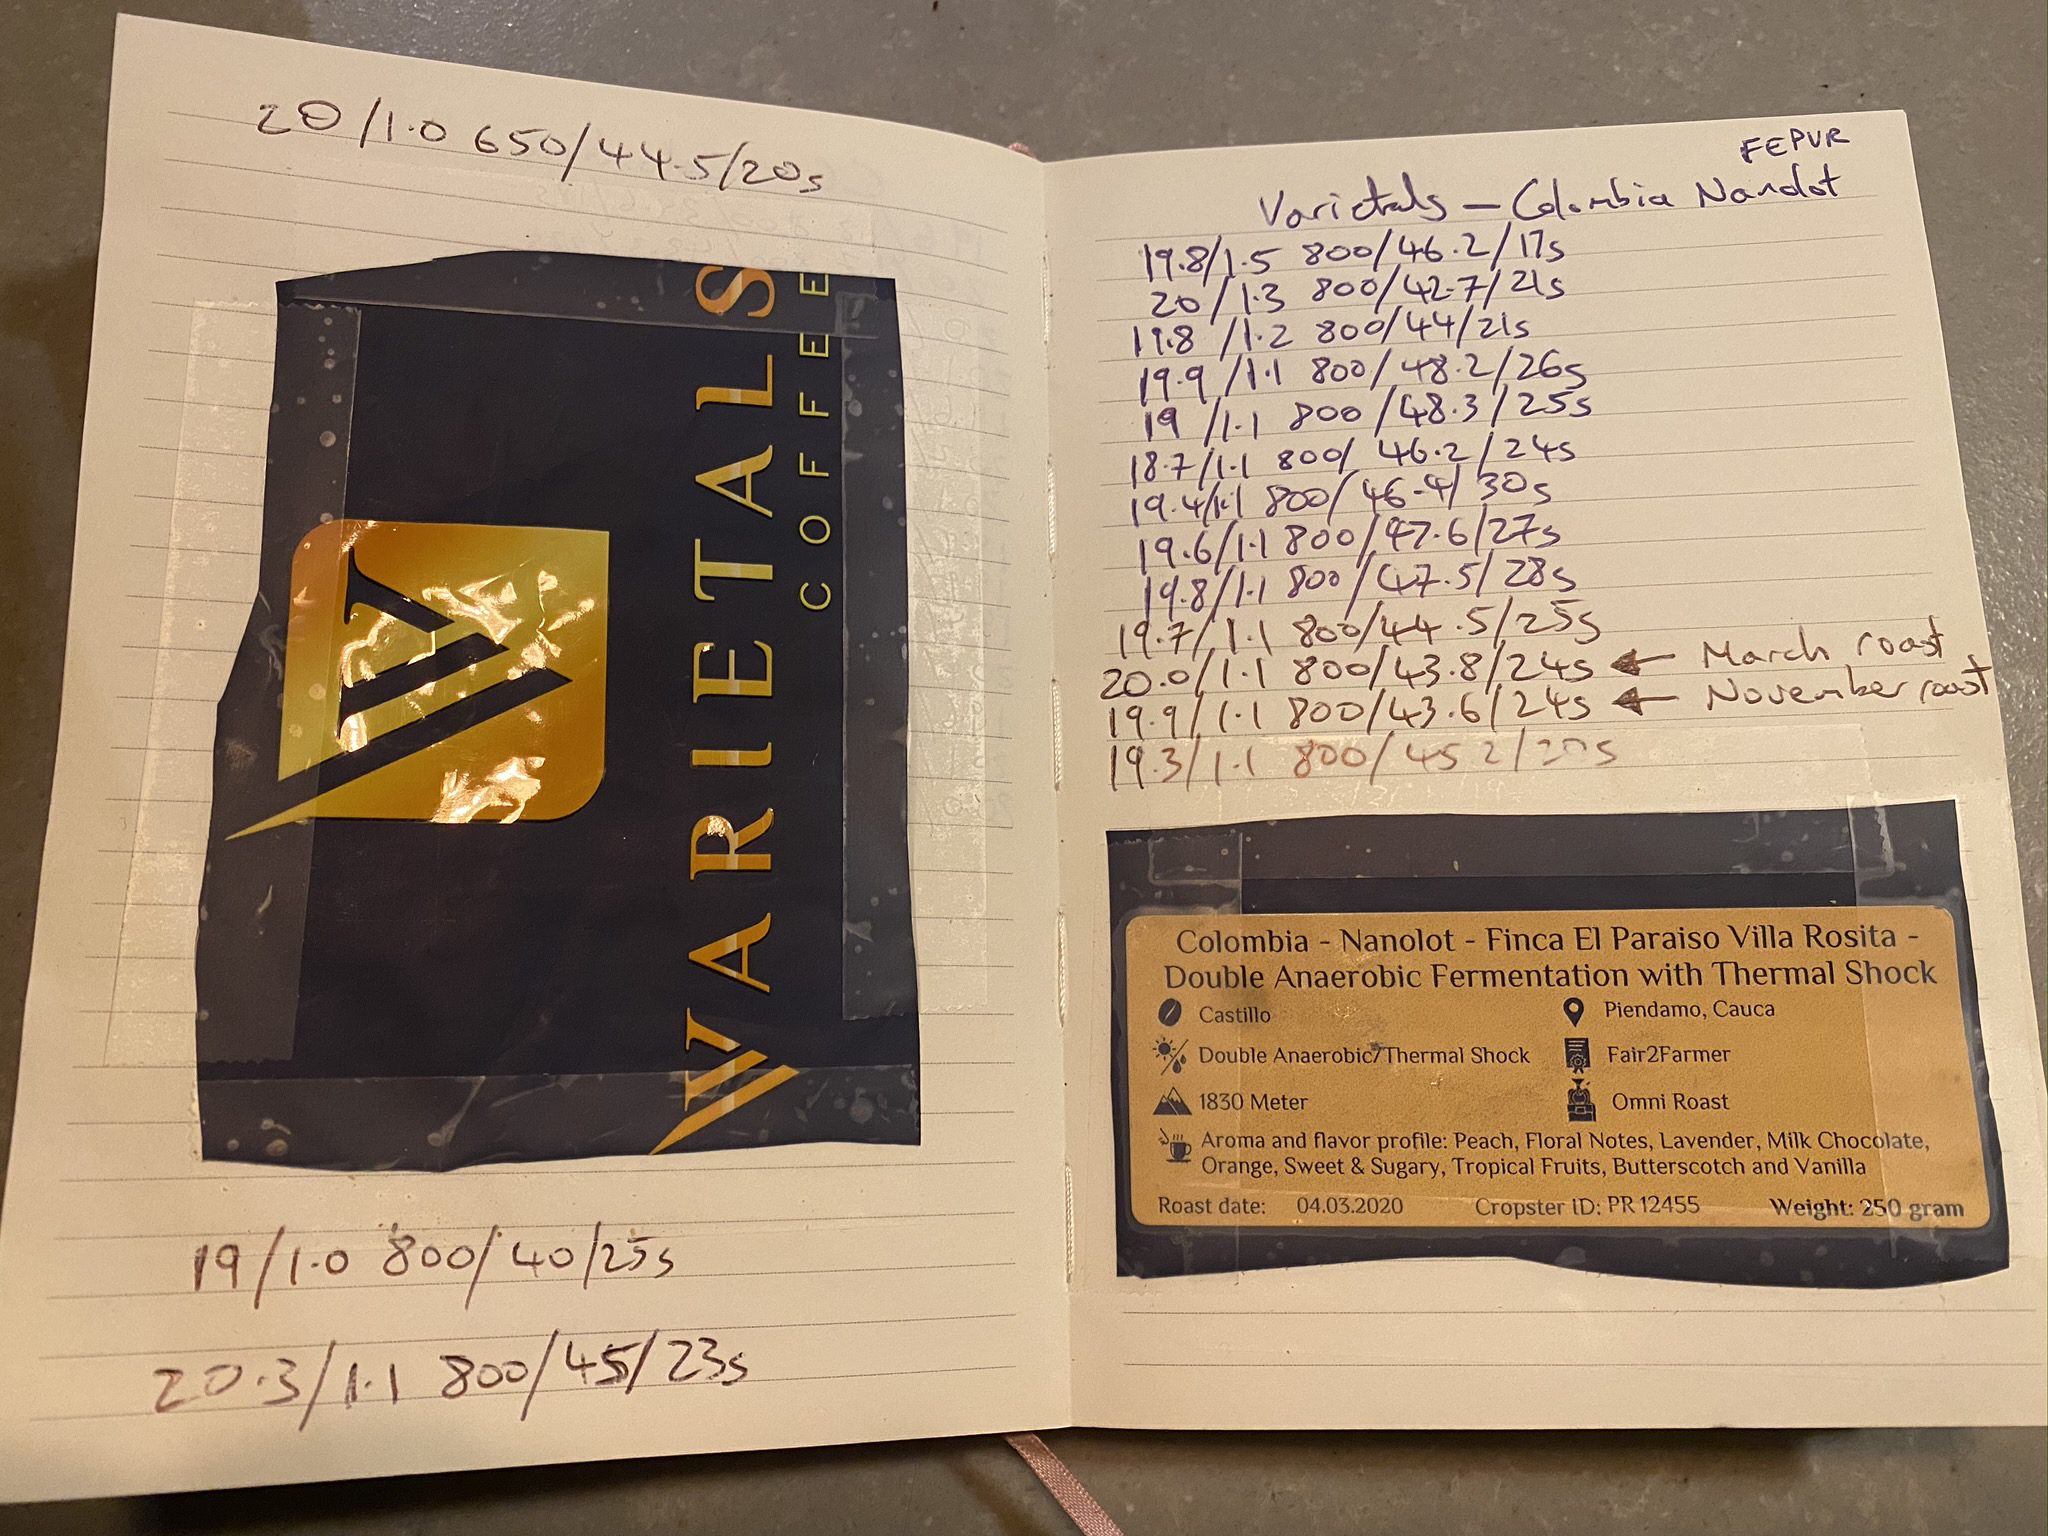 20/1.0 650/44.5/20s
VARIETALS
COFFEE
19/1.0 800/40/25s
20.3/1.1 800/45/23s
FEPVR
Varietals – Colombia Nanolot
19.8/1.5 800/46.2/17s
20/1.3 800/42.7/21s
19.8/1.2 800/44/21s
19.9/1.1 800/48.2/26s
19/1.1 800/48.3/25s
18.7/1.1 800/46.2/24s
19.4/1.1 800/46.4/30s
19.6/1.1 800/47.6/27s
19.8/1.1 800/47.5/28s
19.7/1.1 800/44.5/25s
20.0/1.1 800/43.8/24s ← March roast
19.9/1.1 800/43.6/24s ← November roast
19.3/1.1 800/45.2/20s
Colombia - Nanolot - Finca El Paraiso Villa Rosita -
Double Anaerobic Fermentation with Thermal Shock
Castillo
Piendamo, Cauca
Double Anaerobic/Thermal Shock
Fair2Farmer
1830 Meter
Omni Roast
Aroma and flavor profile: Peach, Floral Notes, Lavender, Milk Chocolate,
Orange, Sweet & Sugary, Tropical Fruits, Butterscotch and Vanilla
Roast date: 04.03.2020 Cropster ID: PR 12455 Weight: 250 gram